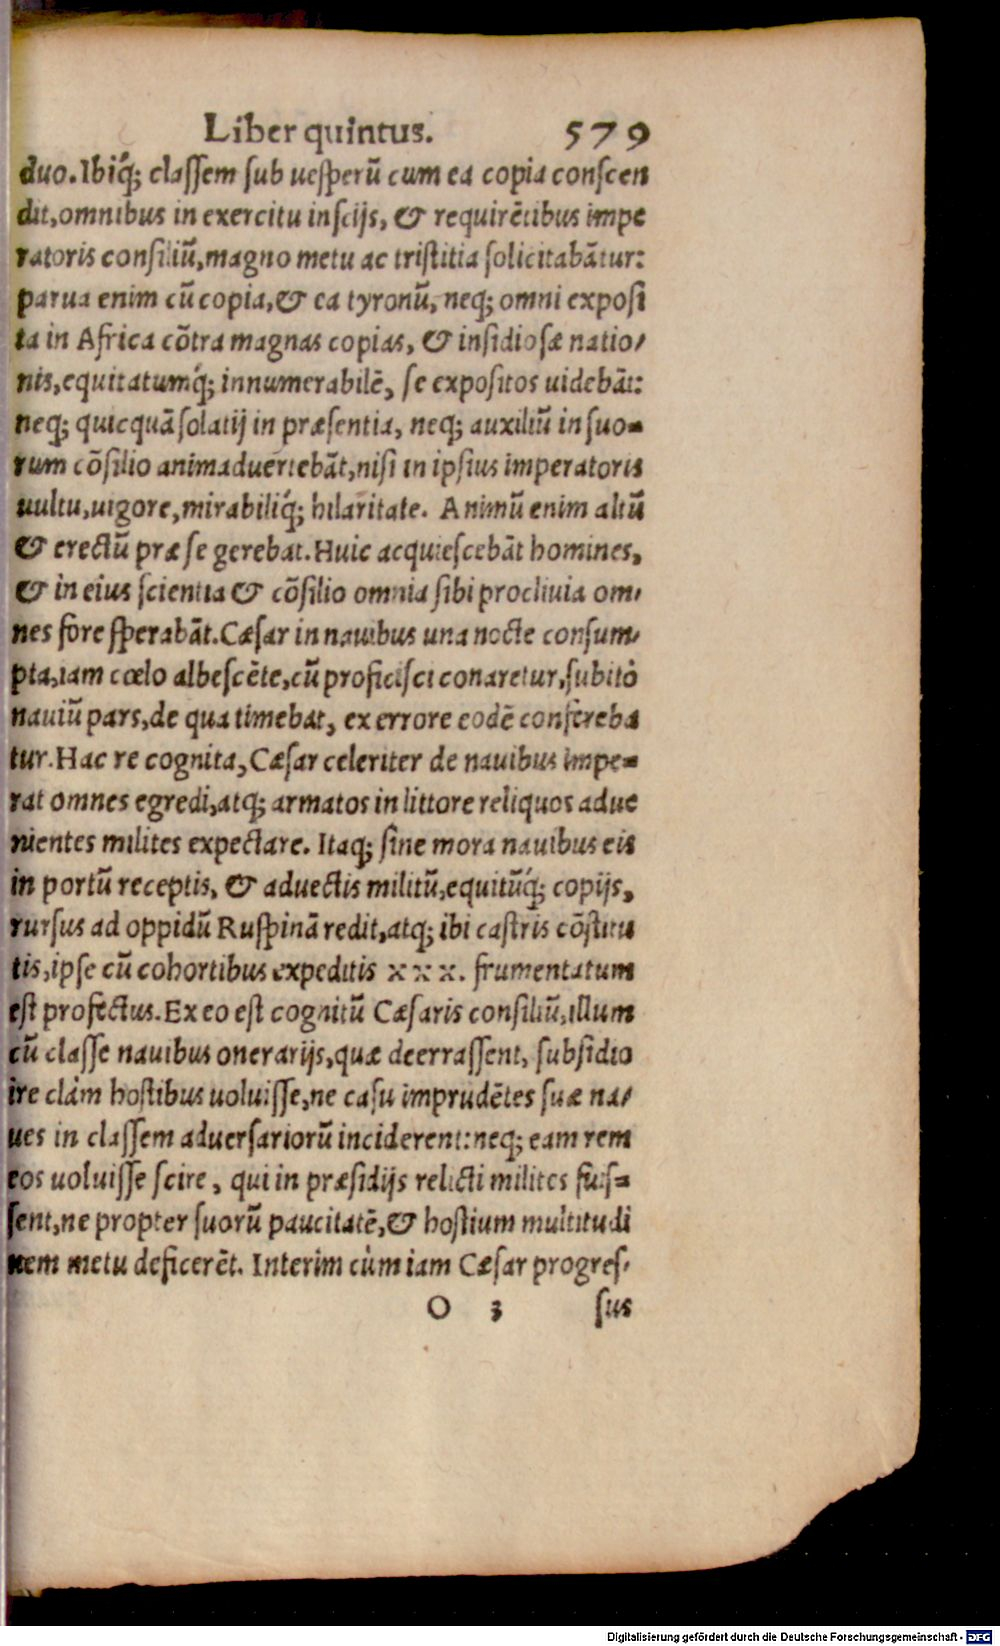 Liber quintus. 579
duo. Ibiq́; claſſem ſub ueſperũ cum ea copia conſcen
dit, omnibus in exercitu inſcijs, & requirẽtibus impe
ratoris conſiliũ, magno metu ac triſtitia ſolicitabãtur:
parua enim cũ copia, & ea tyronũ, neq; omni expoſi
ta in Africa cõtra magnas copias, & inſidioſæ natio/
nis, equitatumq́; innumerabilẽ, ſe expoſitos uidebãt:
neq; quicquã ſolatij in præſentia, neq; auxiliũ in ſuo=
rum cõſilio animaduertebãt, niſi in ipſius imperatoris
uultu, uigore, mirabiliq́; hilaritate. Animũ enim altũ
& erectũ præ ſe gerebat. Huic acquieſcebãt homines,
& in eius ſcientia & cõſilio omnia ſibi procliuia om/
nes fore ſperabãt. Cæſar in nauibus una nocte conſum/
pta, iam cœlo albeſcẽte, cũ proficiſci conaretur, ſubitò
nauiũ pars, de qua timebat, ex errore eodẽ confereba
tur. Hac re cognita, Cæſar celeriter de nauibus impe=
rat omnes egredi, atq; armatos in littore reliquos adue
nientes milites expectare. Itaq; ſine mora nauibus eis
in portũ receptis, & aduectis militũ, equitũq́; copijs,
rurſus ad oppidũ Ruſpinã redit, atq; ibi caſtris cõſtitu
tis, ipſe cũ cohortibus expeditis xxx. frumentatum
eſt profectus. Ex eo eſt cognitũ Cæſaris conſiliũ, illum
cũ claſſe nauibus onerarijs, quæ deerraſſent, ſubſidio
ire clàm hoſtibus uoluiſſe, ne caſu imprudẽtes ſuæ na/
ues in claſſem aduerſariorũ inciderent: neq; eam rem
eos uoluiſſe ſcire, qui in præſidijs relicti milites fuiſ=
ſent, ne propter ſuorũ paucitatẽ, & hoſtium multitudi
nem metu deficerẽt. Interim cùm iam Cæſar progreſ/
O 3 ſus
Digitalisierung gefördert durch die Deutsche Forschungsgemeinschaft - DFG